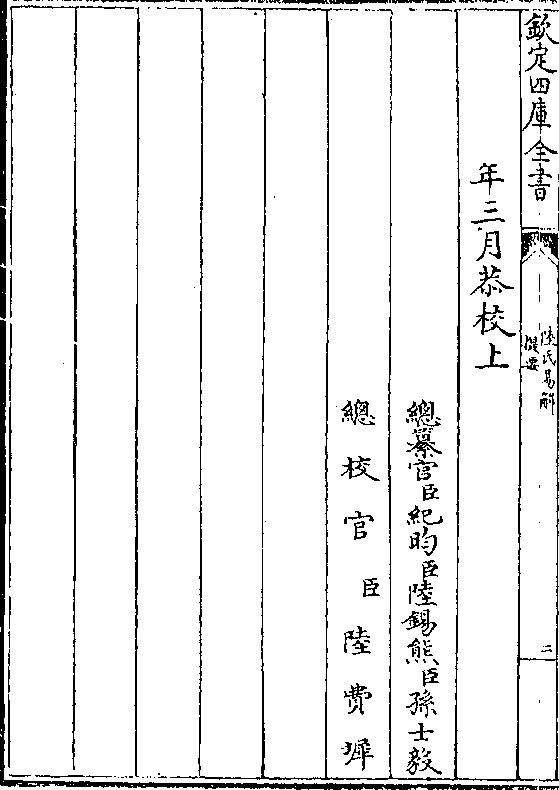 欽定四庫全書
陸氏易解
提要
二
年三月恭校上
總纂官臣紀昀臣陸錫熊臣孫士毅
總校官臣陸費墀